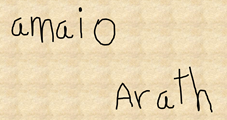 amaio
Arath